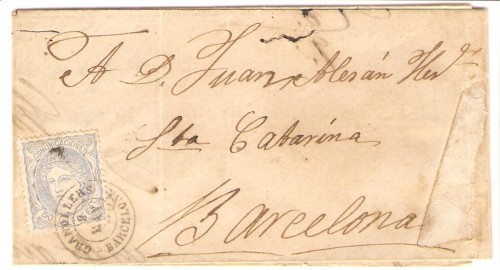 A D. Juan Alesán Her.
Sta Catarina
Barcelona
COMUNICACIONES
GRANOLLERS
BARCELONA